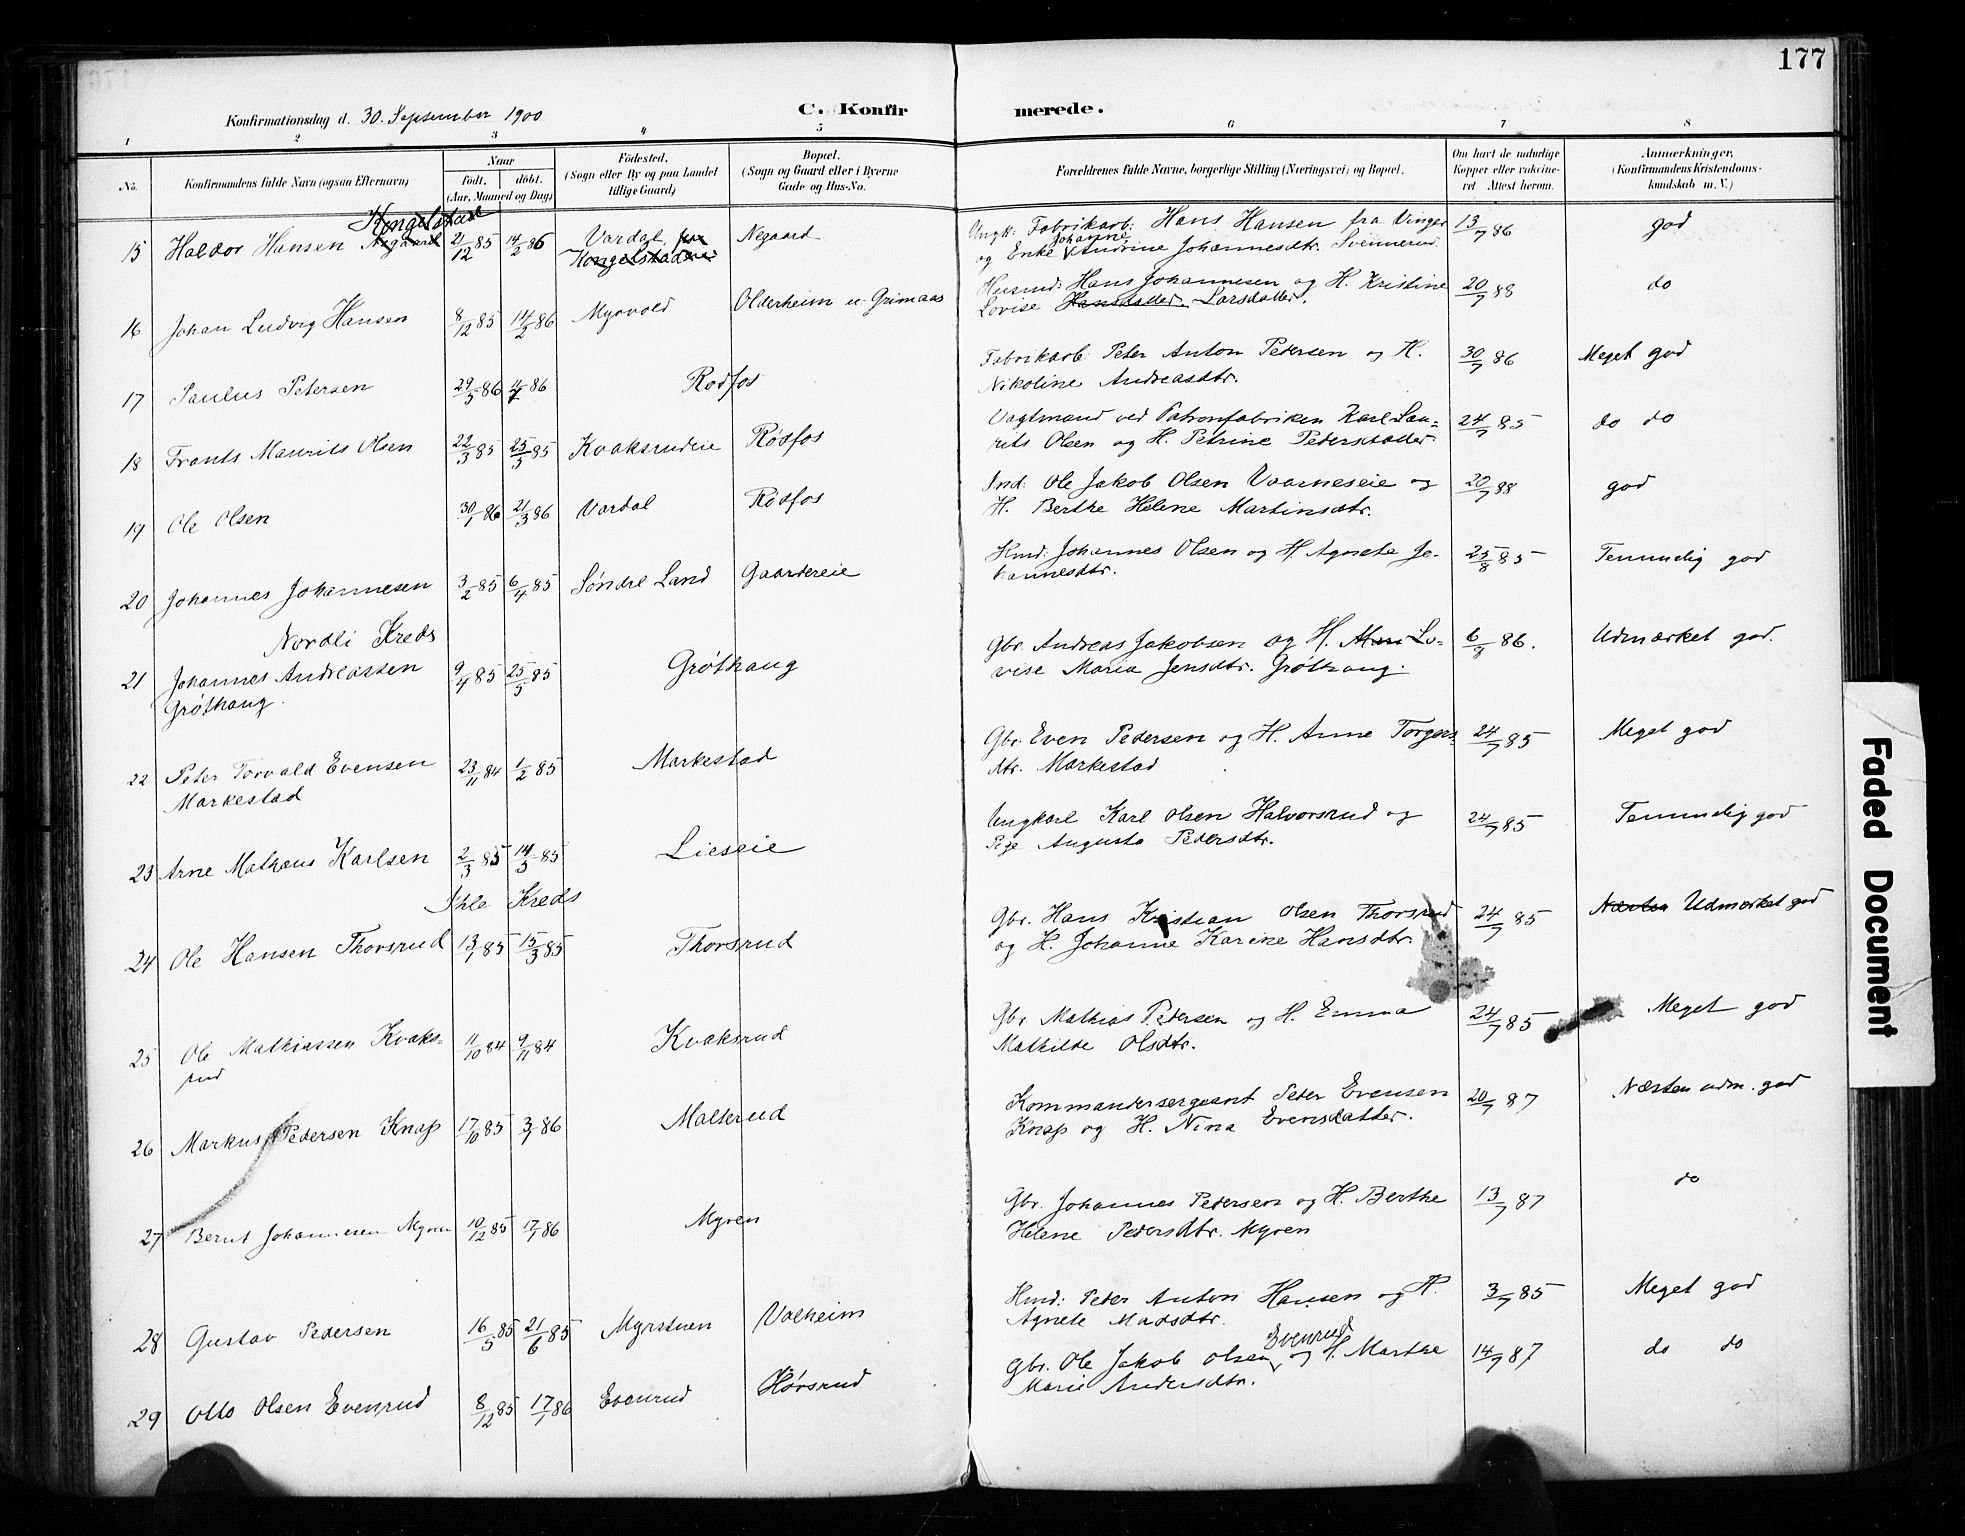 177
Konfirmationsdag d. 30. September 1900
C. Konfirmerede.
1 2 3 4 5 6 7 8
No.
Konfirmandens fulde Navn (ogsaa Efternavn)
Naar
født. døbt.
(Aar, Maaned og Dag)
Fødested.
(Sogn eller By og paa Landet
tillige Gaard)
Bopæl.
(Sogn og Gaard eller i Byerne
Gade og Hus-No.
Forældrenes fulde Navne, borgerlige Stilling (Næringsvei) og Bopæl.
Om havt de naturlige
Kopper eller vakcine-
ret Attest herom.
Anmærkninger.
(Konfirmandens Kristendoms-
kundskab m. V.)
Kongelstad
15 Haldor Hansen Negaard 21/12 85 14/2 86 Vardal Kongelstadeie Negaard Ungk: Fabrikarb: Hans Hansen fra Vinger 13/7 86 god
og Enke Johanne Andrine Johannesdtr. Svennerud
16 Johan Ludvig Hansen 8/12 85 14/2 86 Myrvold Olderheim u. Grimaas Husmd: Hans Johannesen og H. Kristine 20/7 88 do
Lovise Hansdatter Larsdatter.
17 Paulus Petersen 29/5 86 86 Rødfos Fabrikarb Peter Anton Pedersen og H. 30/7 86 Meget god
Nikoline Andreasdtr.
18 Frants Maurits Olsen 22/3 85 25/5 85 Kvaksrudeie Rødfos Vagtmand ved Patronfabriken Karl Lau- 24/7 85 do do
rits Olsen og H. Petrine Pedersdatter.
19 Ole Olsen 30/1 86 21/3 86 Vardal Rødfos Ind: Ole Jakob Olsen Vaarneseie og 20/7 88 god
H. Berthe Helene Martinsdtr.
20 Johannes Johannesen 3/2 85 6/4 85 Søndre Land Gaardereie Hmd: Johannes Olsen og H. Agnete Jo- 25/8 85 Temmelig god
hannesdtr.
Nordli Kreds
21 Johannes Andreassen 9/4 85 25/5 85 Grøthaug Gbr. Andreas Jakobsen og H. Lo- 86. Udmærket god.
Grøthaug. vise Maria Jensdtr. Grøthaug.
22 Peter Torvald Evensen 23/11 84 1/2 85 Markestad Gbr. Even Pedersen og H. Anne Torgers- 24/7 85 Meget god
Markestad dtr. Markestad
23 Arne Mathæus Karlsen 2/3 85 14/5 85 Lieseie Ungkarl Karl Olsen Halvorsrud og 24/7 85 Temmelig god
Pige Augusta Pedersdtr.
Ihle Kreds
24 Ole Hansen Thorsrud 13/1 85 15/3 85 Thorsrud Gbr. Hans Kristian Olsen Thorsrud 24/7 85 Næsten Udmærket god
og H. Johanne Karine Hansdtr.
25 Ole Mathiassen Kvaks- 11/10 84 9/11 84 Kvaksrud Gbr. Mathias Pedersen og H. Emma 24/7 85 Meget god
rud Mathilde Olsdtr.
26 Markus Pedersen Knap 17/10 85 3/1 86 Malterud Kommandersergeant Peter Evensen 20/7 87 Næsten udm. god
Knap og H. Nina Evensdatter.
27 Bernt Johannesen Myren 10/12 85 17/1 86 Myren Gbr. Johannes Pedersen og H. Berthe 13/7 87 do
Helene Pedersdtr. Myren
28 Gustav Pedersen 16/5 85 21/6 85 Myrstuen Valheim Hmd: Peter Anton Hansen og H. 3/7 85 Meget god
Agnete Madsdtr.
29 Otto Olsen Evenrud 8/12 85 17/1 86 Evenrud Hørsrud Gbr. Ole Jakob Olsen Evenrud og H. Marthe 14/7 87 do do
Marie Andersdtr.
Faded Document